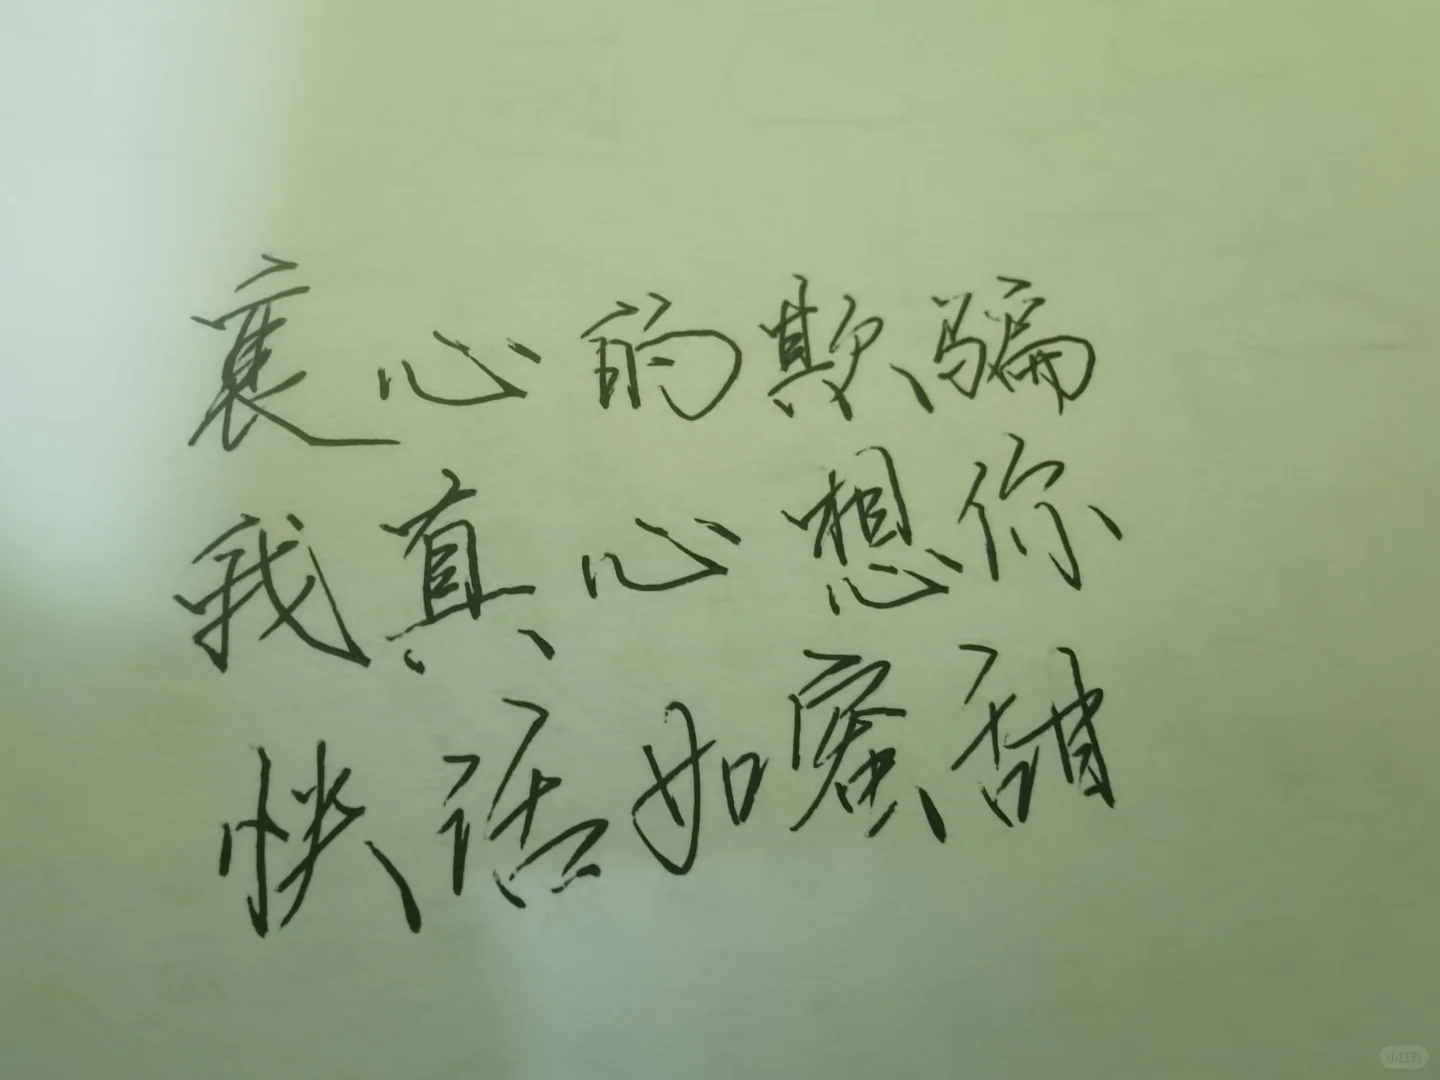 衷心的欺骗
我真心想你
快话如蜜甜
小红书